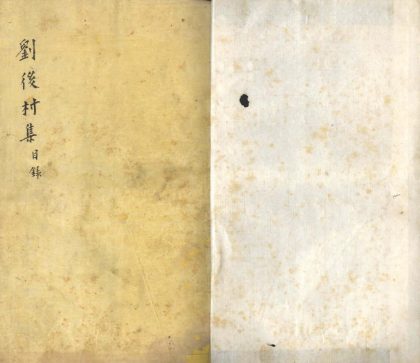 劉後村集目錄